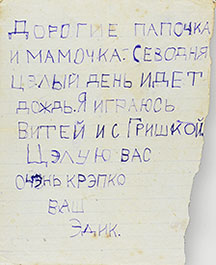 ДОРОГИЕ ПАПОЧКА
И МАМОЧКА. СЕВОДНЯ
ЦЭЛЫЙ ДЕНЬ ИДЕТ
ДОЖДЬ. Я ИГРАЮСЬ
ВИТЕЙ И С ГРИШКОЙ
ЦЭЛУЮ ВАС
ОЧЭНЬ КРЭПКО
ВАШ
ЭДИК.